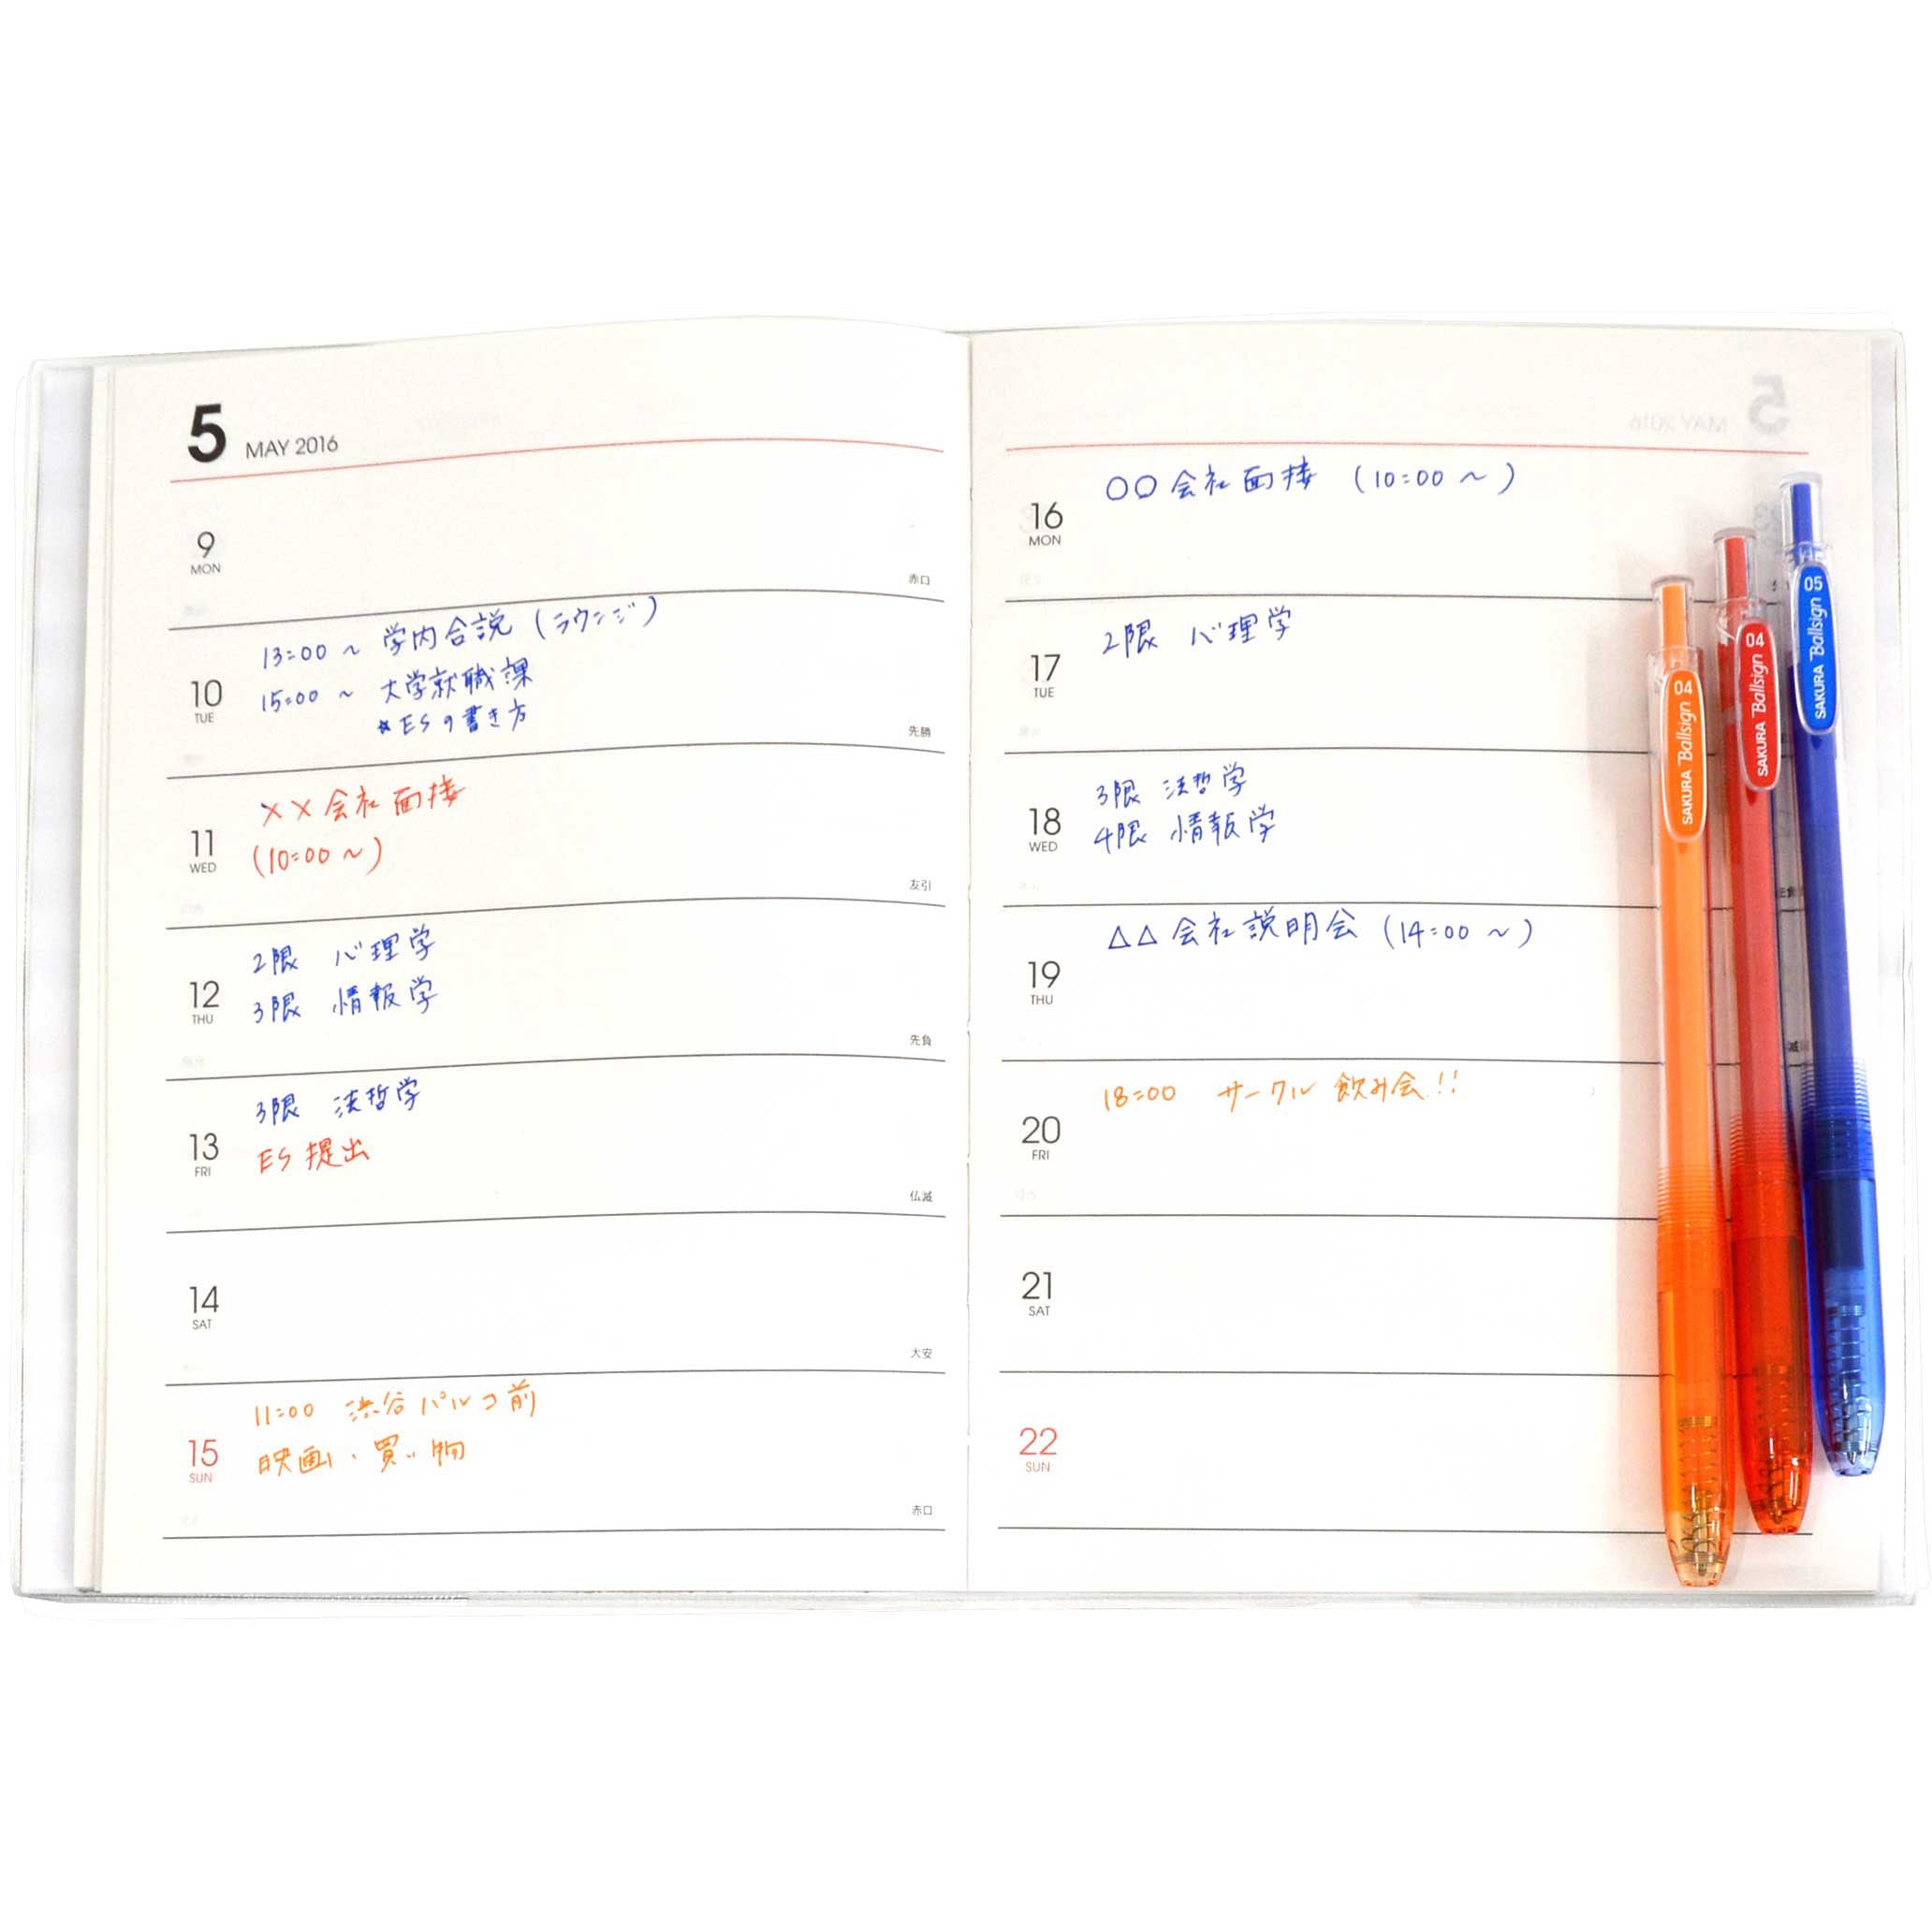 5 MAY 2016
9
MON
赤口
10
TUE
13:00 ~ 学内合説 (ラウンジ)
15:00 ~ 大学就職課
*ESの書き方
先勝
11
WED
××会社面接
(10:00~)
友引
12
THU
2限 心理学
3限 情報学
先負
13
FRI
3限 法哲学
ES提出
仏滅
14
SAT
大安
15
SUN
11:00 渋谷パルコ前
映画、買い物
赤口
16
MON
○○会社面接 (10:00~)
17
TUE
2限 心理学
18
WED
3限 法哲学
4限 情報学
19
THU
△△会社説明会 (14:00~)
20
FRI
18:00 サークル飲み会!!
21
SAT
22
SUN
SAKURA Ballsign 04
SAKURA Ballsign 04
SAKURA Ballsign 05